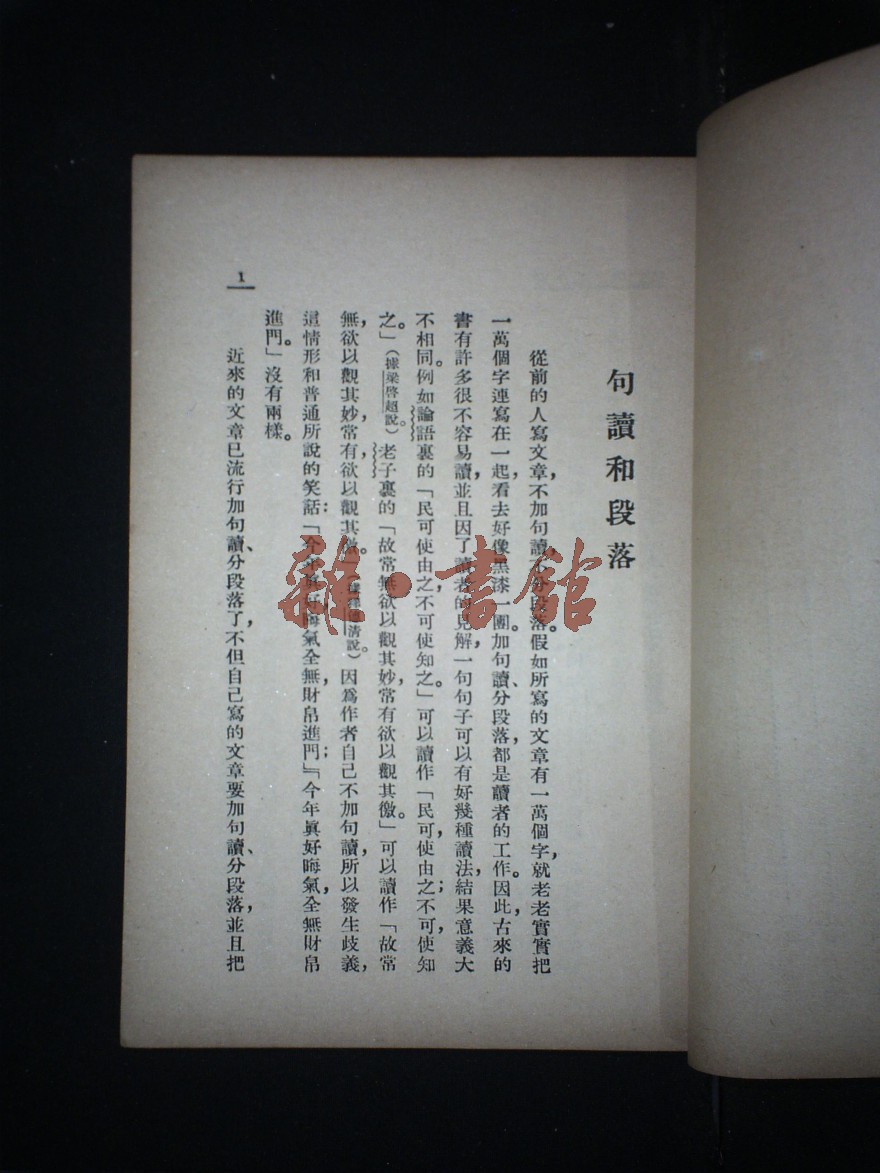 句讀和段落
從前的人寫文章，不加句讀，不分段落。假如所寫的文章有一萬個字，就老老實實把
一萬個字連寫在一起，看去好像黑漆一團。加句讀、分段落，都是讀者的工作。因此，古來的
書有許多很不容易讀，並且因了讀者的見解，一句句子可以有好幾種讀法，結果意義大
不相同。例如論語裏的「民可使由之不可使知之。」可以讀作「民可，使由之；不可，使知
之。」（據梁啓超說。）老子裏的「故常無欲以觀其妙，常有欲以觀其徼。」可以讀作「故常
無，欲以觀其妙，常有，欲以觀其徼。」清說。）因爲作者自己不加句讀，所以發生歧義，
這情形和普通所說的笑話：「今年眞好晦氣全無，財帛進門」；「今年眞好晦氣，全無財帛
進門。」沒有兩樣。
近來的文章已流行加句讀、分段落了，不但自己寫的文章要加句讀、分段落，並且把
1
雜·書館